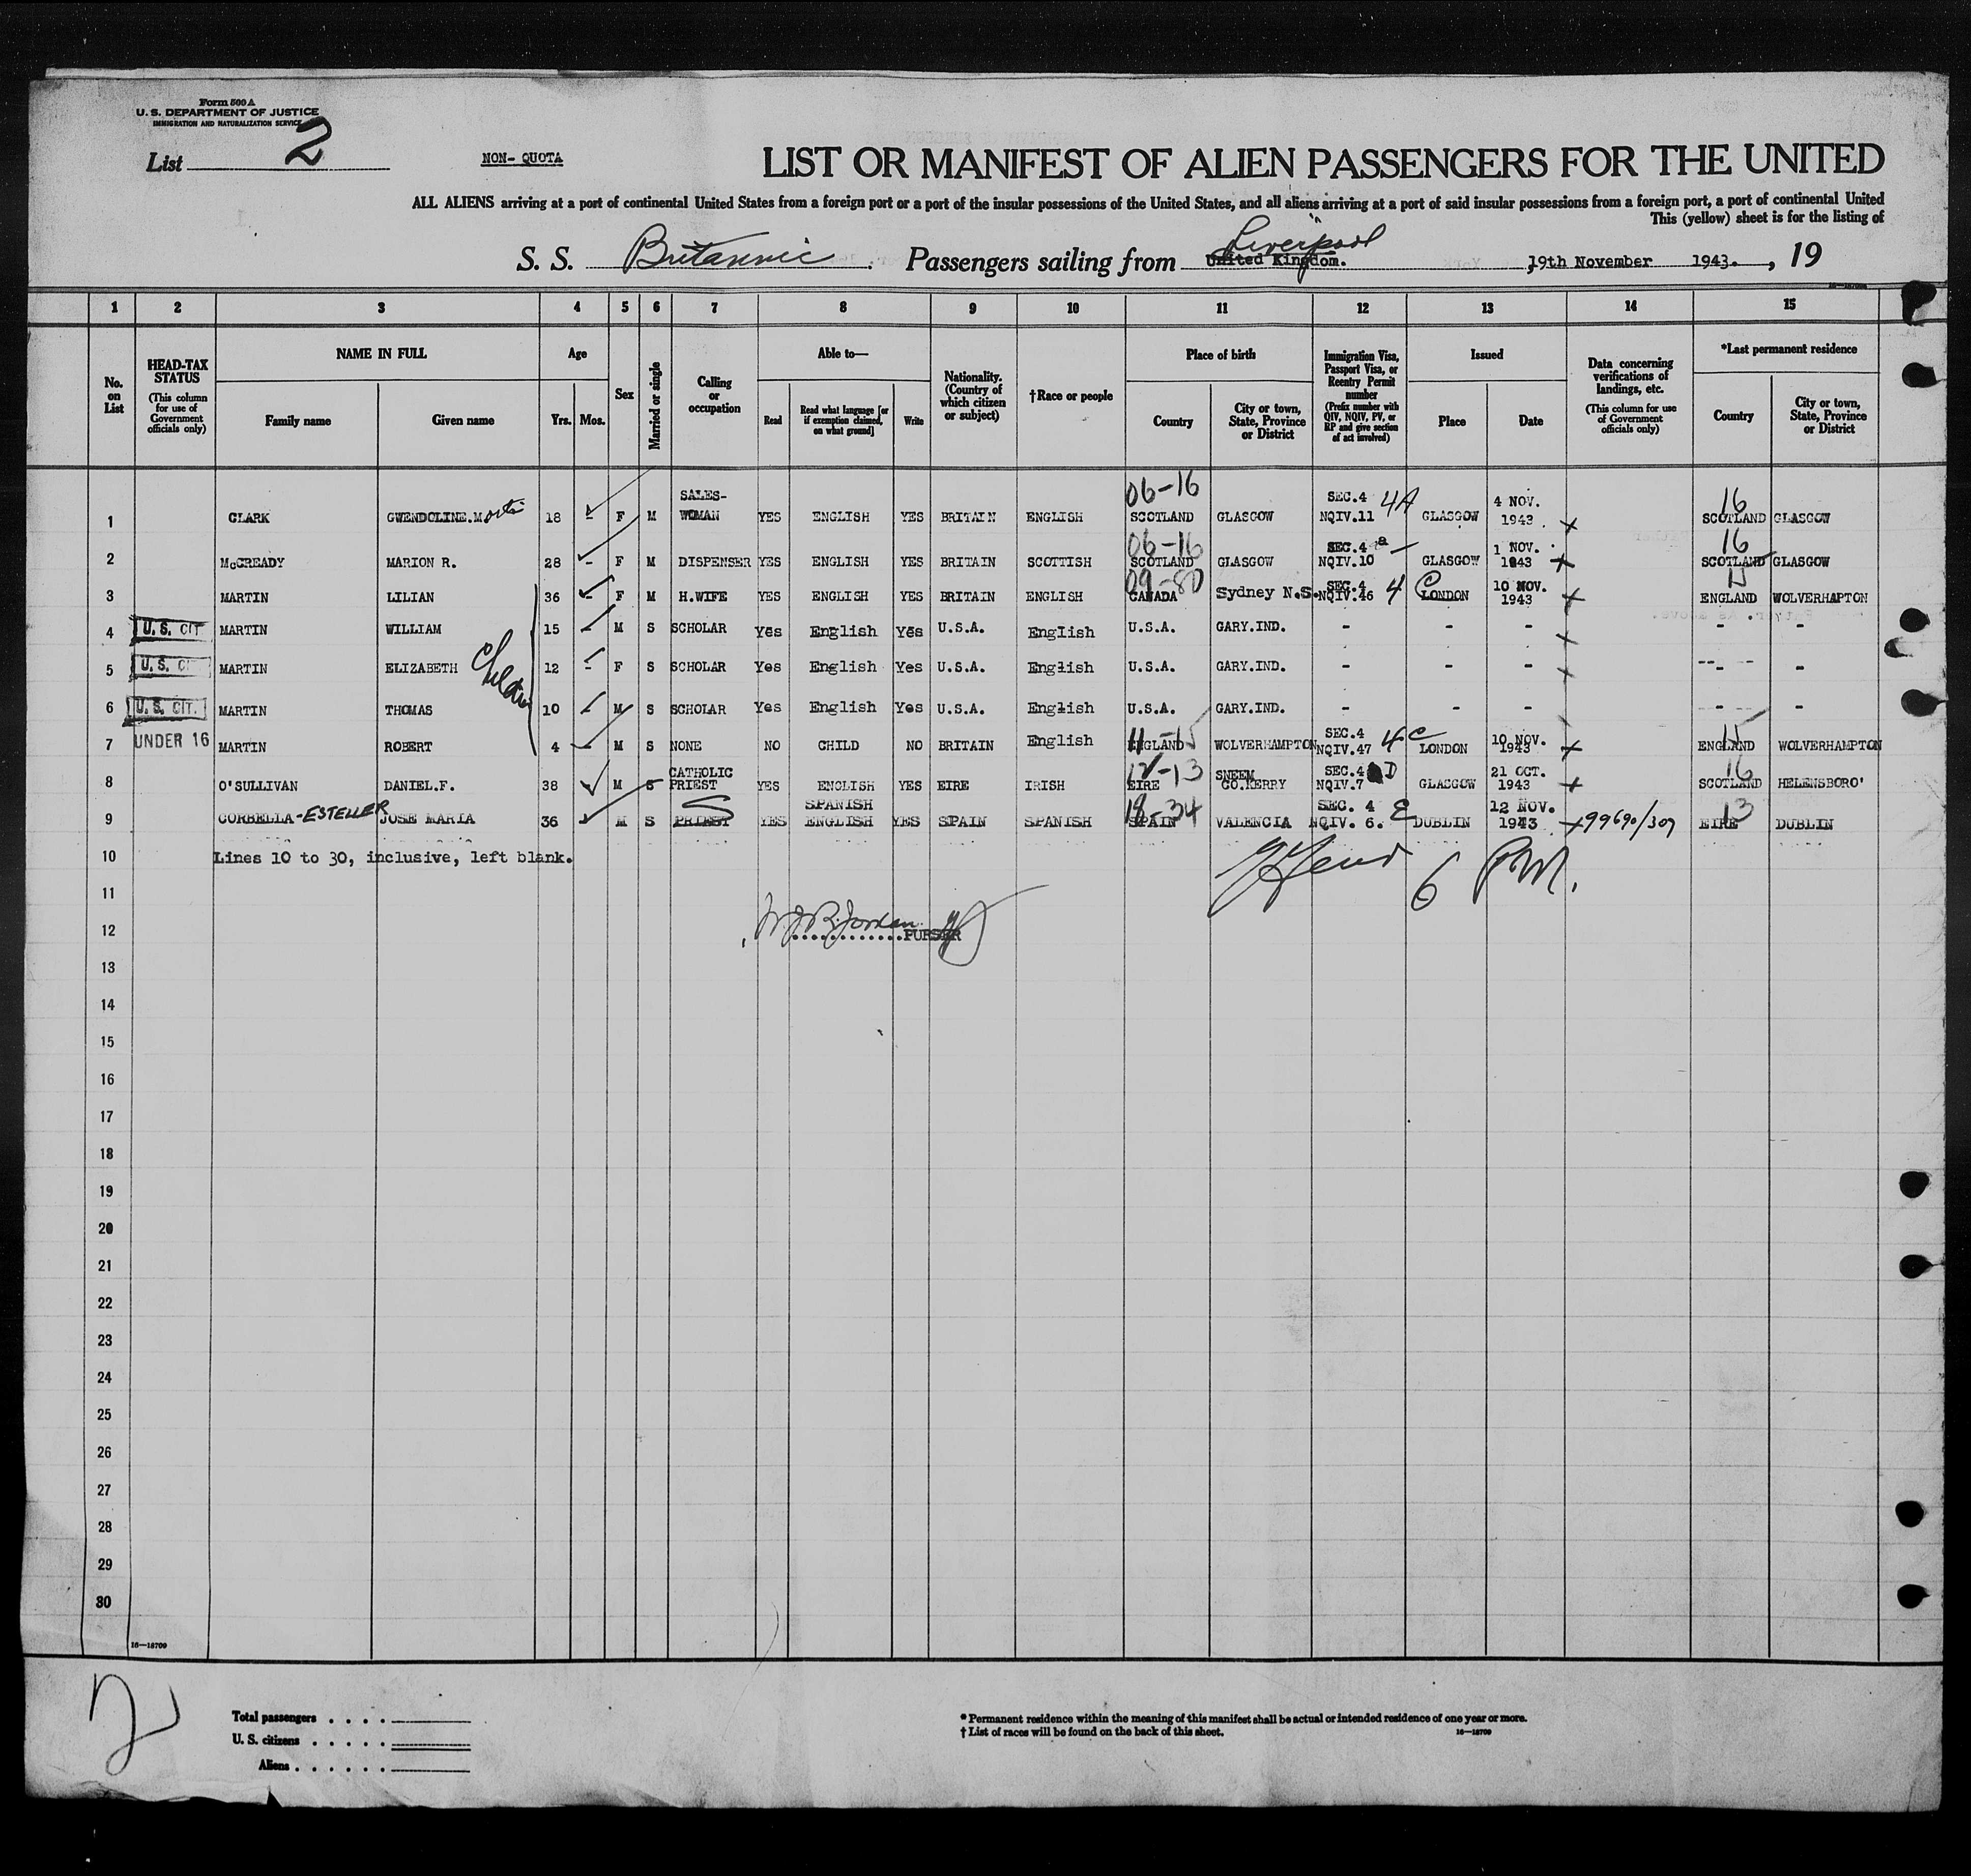 Form 500 A
U. S. DEPARTMENT OF JUSTICE
IMMIGRATION AND NATURALIZATION SERVICE
List 2
NON- QUOTA
LIST OR MANIFEST OF ALIEN PASSENGERS FOR THE UNITED
ALL ALIENS arriving at a port of continental United States from a foreign port or a port of the insular possessions of the United States, and all aliens arriving at a port of said insular possessions from a foreign port, a port of continental United
This (yellow) sheet is for the listing of
Liverpool
S. S. Britannic. Passengers sailing from United Kingdom. 19th November 1943. , 19
1 2 3 4 5 6 7 8 9 10 11 12 13 14 15
No. on List
HEAD-TAX STATUS (This column for use of Government officials only)
NAME IN FULL
Family name Given name
Age
Yrs. Mos.
Sex
Married or single
Calling or occupation
Able to—
Read Read what language [or if exemption claimed, on what ground] Write
Nationality. (Country of which citizen or subject)
†Race or people
Place of birth
Country City or town, State, Province or District
Immigration Visa, Passport Visa, or Reentry Permit number (Prefix number with QIV, NQIV, PV, or RP and give section of act involved)
Issued
Place Date
Data concerning verifications of landings, etc. (This column for use of Government officials only)
*Last permanent residence
Country City or town, State, Province or District
06-16 16
SALES- SEC.4 4A 4 NOV.
1 CLARK GWENDOLINE.M 18 - F M WOMAN YES ENGLISH YES BRITAIN ENGLISH SCOTLAND GLASGOW NQIV.11 GLASGOW 1943 SCOTLAND GLASGOW
06-16 SEC.4 a 1 NOV. 16
2 McCREADY MARION R. 28 - F M DISPENSER YES ENGLISH YES BRITAIN SCOTTISH SCOTLAND GLASGOW NQIV.10 GLASGOW 1943 SCOTLAND GLASGOW
09-80 SEC.4 4 C 10 NOV. 15
3 MARTIN LILIAN 36 - F M H.WIFE YES ENGLISH YES BRITAIN ENGLISH CANADA Sydney N.S. NQIV.46 LONDON 1943 ENGLAND WOLVERHAPTON
4 U. S. CIT MARTIN WILLIAM 15 - M S SCHOLAR Yes English Yes U.S.A. English U.S.A. GARY.IND. - - - - -
5 U. S. CI MARTIN ELIZABETH 12 - F S SCHOLAR Yes English Yes U.S.A. English U.S.A. GARY.IND. - - - - -
Children
6 U. S. CIT. MARTIN THOMAS 10 - M S SCHOLAR Yes English Yes U.S.A. English U.S.A. GARY.IND. - - - - -
11-15 SEC.4 4 C 10 NOV. 15
7 UNDER 16 MARTIN ROBERT 4 - M S NONE NO CHILD NO BRITAIN English ENGLAND WOLVERHAMPTON NQIV.47 LONDON 1943 ENGLAND WOLVERHAMPTON
CATHOLIC 12-13 SNEEM SEC.4 D 21 OCT. 16
8 O'SULLIVAN DANIEL.F. 38 M S PRIEST YES ENGLISH YES EIRE IRISH EIRE CO.KERRY NQIV.7 GLASGOW 1943 SCOTLAND HELENSBORO'
SPANISH 18-34 SEC. 4 E 12 NOV. 13
9 CORBELLA-ESTELLER JOSE MARIA 36 M S PRIEST YES ENGLISH YES SPAIN SPANISH SPAIN VALENCIA NQIV. 6. DUBLIN 1943 99690/309 EIRE DUBLIN
10 Lines 10 to 30, inclusive, left blank.
6 P.M.
11
12 Jordan PURSER
13
14
15
16
17
18
19
20
21
22
23
24
25
26
27
28
29
30
16—18709
2
Total passengers . . . .
U. S. citizens . . . . .
Aliens . . . . . .
* Permanent residence within the meaning of this manifest shall be actual or intended residence of one year or more.
† List of races will be found on the back of this sheet.
16—18709